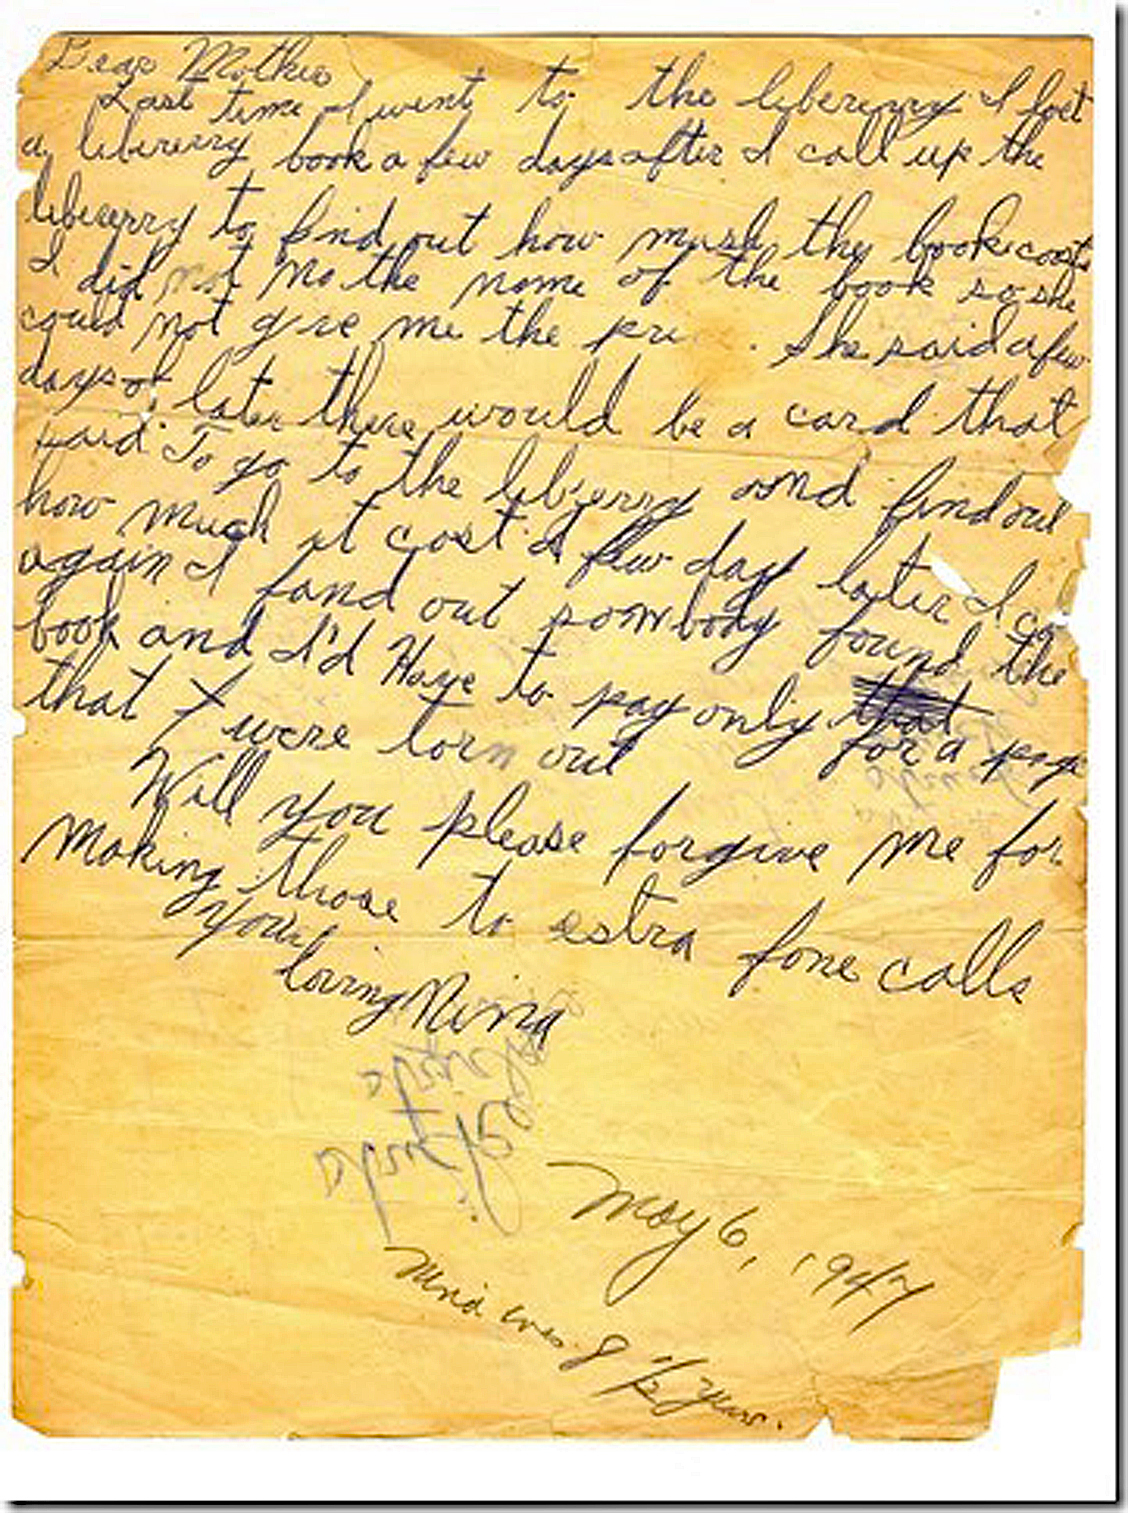 Dear Mother
Last time I went to the libereyry I lost
a libirerry book a few days after I call up the
libererry to find out how mush the book costs
I did not no the name of the book so she
could not give me the pri . She said a few
days of later there would be a card that
said To go to the libierry and find out
how much it cost. A few day later I
again I fand out sombody found the
book and I'd Have to pay only that for a page
that were torn out
Will you please forgive me for
making those to estra fone calls
your
loving Nina
May 6, 1947
Nina was 8 1/2 years.